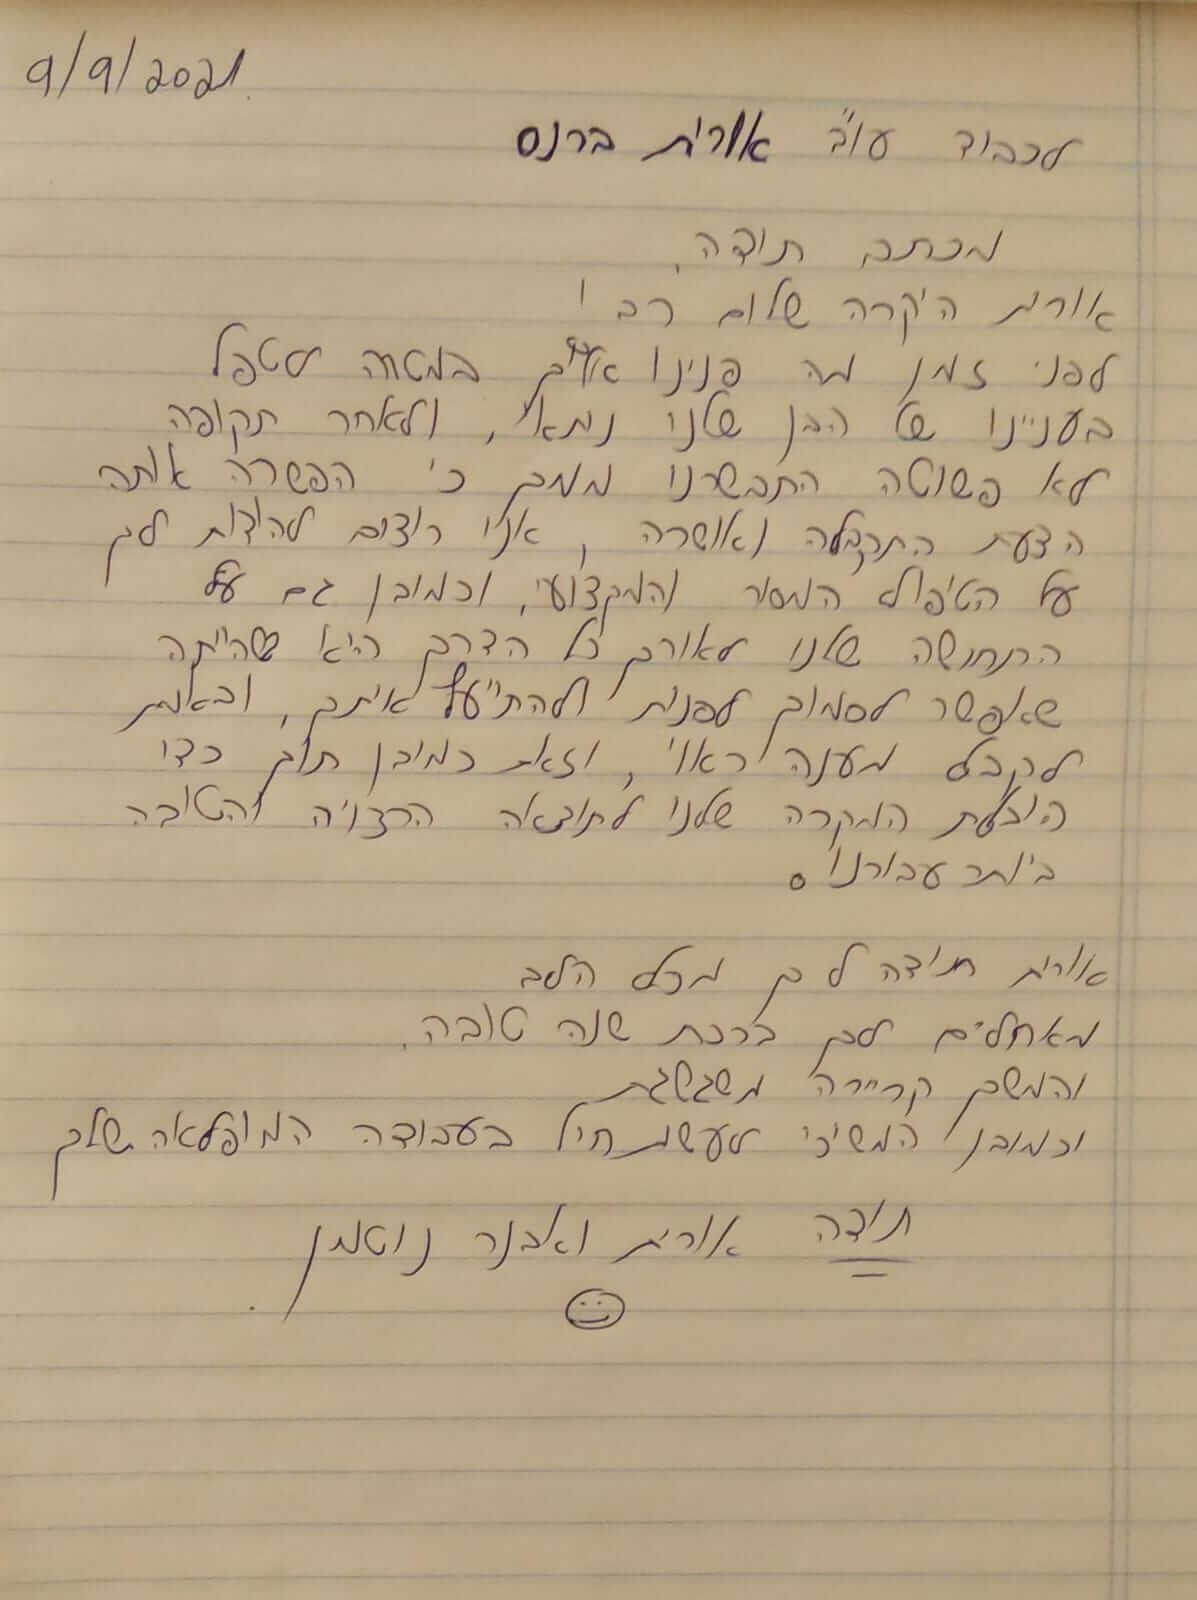 9/9/2021
לכבוד עו"ד אורית ברנס
מכתב תודה.
אורית היקרה שלום רב!
לפני זמן מה פנינו אלייך במטרה שטפל
בעניינו של הבן שלנו נתאי, ולאחר תקופה
לא פשוטה התבשרנו ממך כי הפשרה אותה
הצעת התקבלה ואושרה, אנו רוצים להודות לך
על הטיפול המסור והמקצועי, וכמובן גם על
התחושה שלנו לאורך כל הדרך היא שהייתה
שאפשר לסמוך לפנות ולהתייעץ איתך, ובאמת
לקבל מענה ראוי, וזאת כמובן תוך כדי
הובלת המקרה שלנו לתוצאה הרצויה והטובה
ביותר עבורנו.
אורית תודה לך מכל הלב
מאחלים לך ברכת שנה טובה.
והמשך קריירה משגשגת
וכמובן המשיכי לעשות חיל בעבודה המופלאה שלך
תודה אורית ואבנר נוטמן